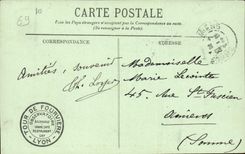 69
CARTE POSTALE
Tous les Pays étrangers n'acceptent pas la Correspondance au recto.
(Se renseigner à la Poste)
CORRESPONDANCE
ADRESSE
Amitiés, souvenir
Mademoiselle
Marie Lecointe
45, Rue St Fuscien
Amiens
(Somme)
TOUR DE FOURVIÈRE
LYON